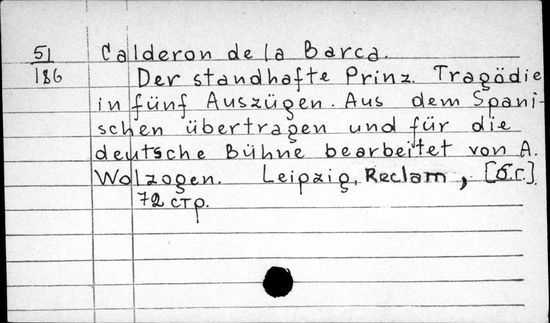 51/186 Calderon de la Barca.
Der standhafte Prinz. Tragödie
in fünf Auszügen. Aus dem Spani-
schen übertragen und für die
deutsche Bühne bearbeitet von A.
Wolzogen. Leipzig, Reclam, [б.г.].
72 стр.